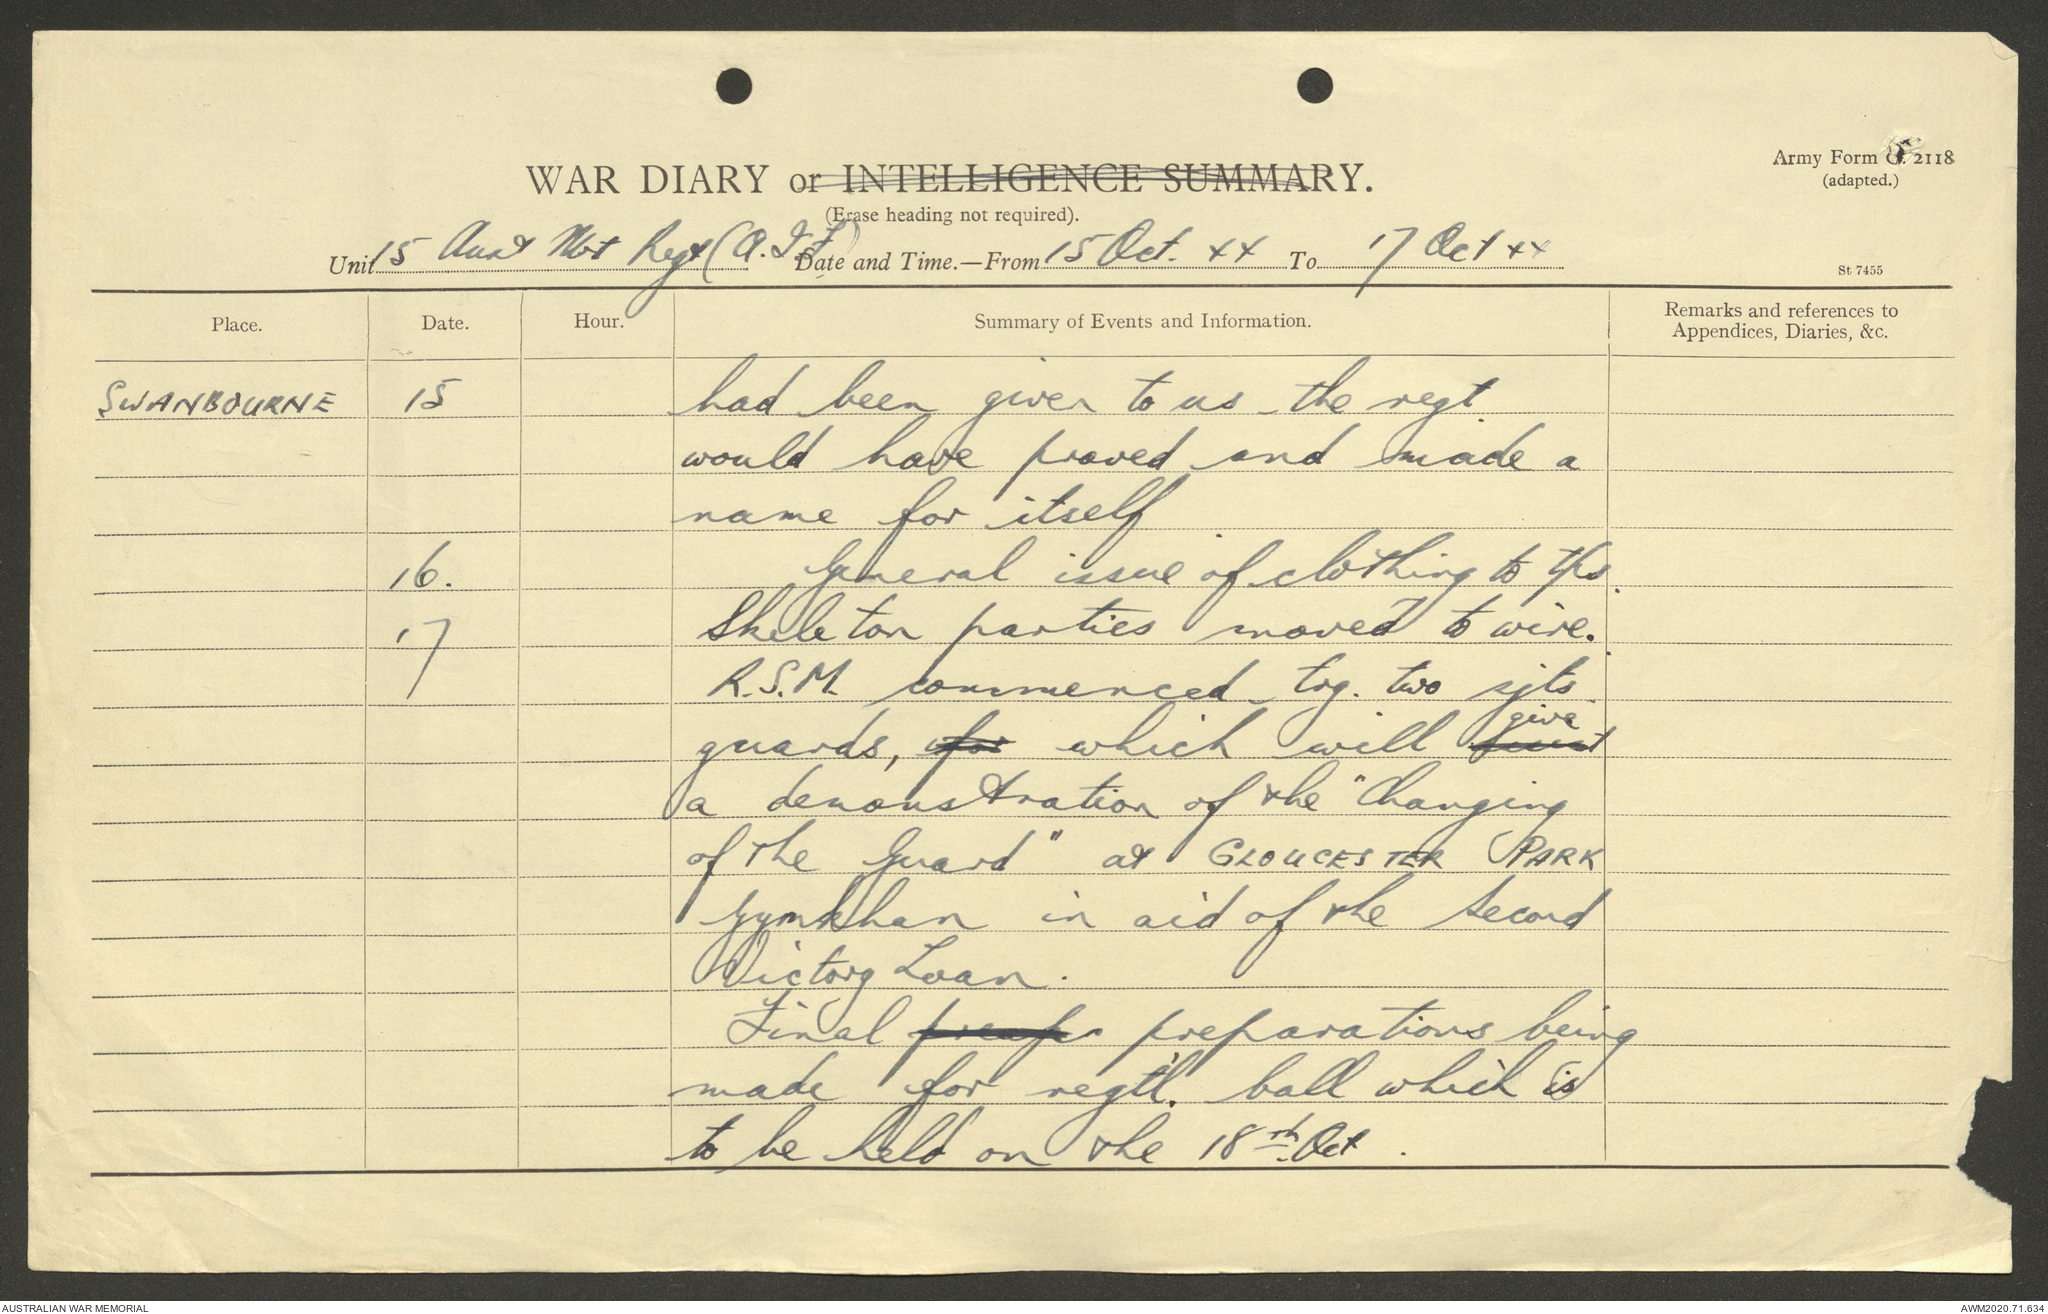 Army Form C. 2118
(adapted.)
WAR DIARY or INTELLIGENCE SUMMARY.
(Erase heading not required).
Unit 15 Aust Mot Regt (A.I.F) Date and Time.—From 15 Oct. 44 To 17 Oct 44
St 7455
Place. Date. Hour. Summary of Events and Information. Remarks and references to
Appendices, Diaries, &c.
SWANBOURNE 15 had been given to us the regt
would have proved and made a
name for itself
16. General issue of clothing to tps.
17 Skeleton parties moved to wire.
R.S.M. commenced trg. two sjts
guards, for which will give
a demonstration of the "Changing
of the Guard" at GLOUCESTER PARK
Gymkhan in aid of the Second
Victory Loan.
Final preps preparations being
made for regtl. ball which is
to be held on the 18th. Oct.
AUSTRALIAN WAR MEMORIAL
AWM2020.71.634